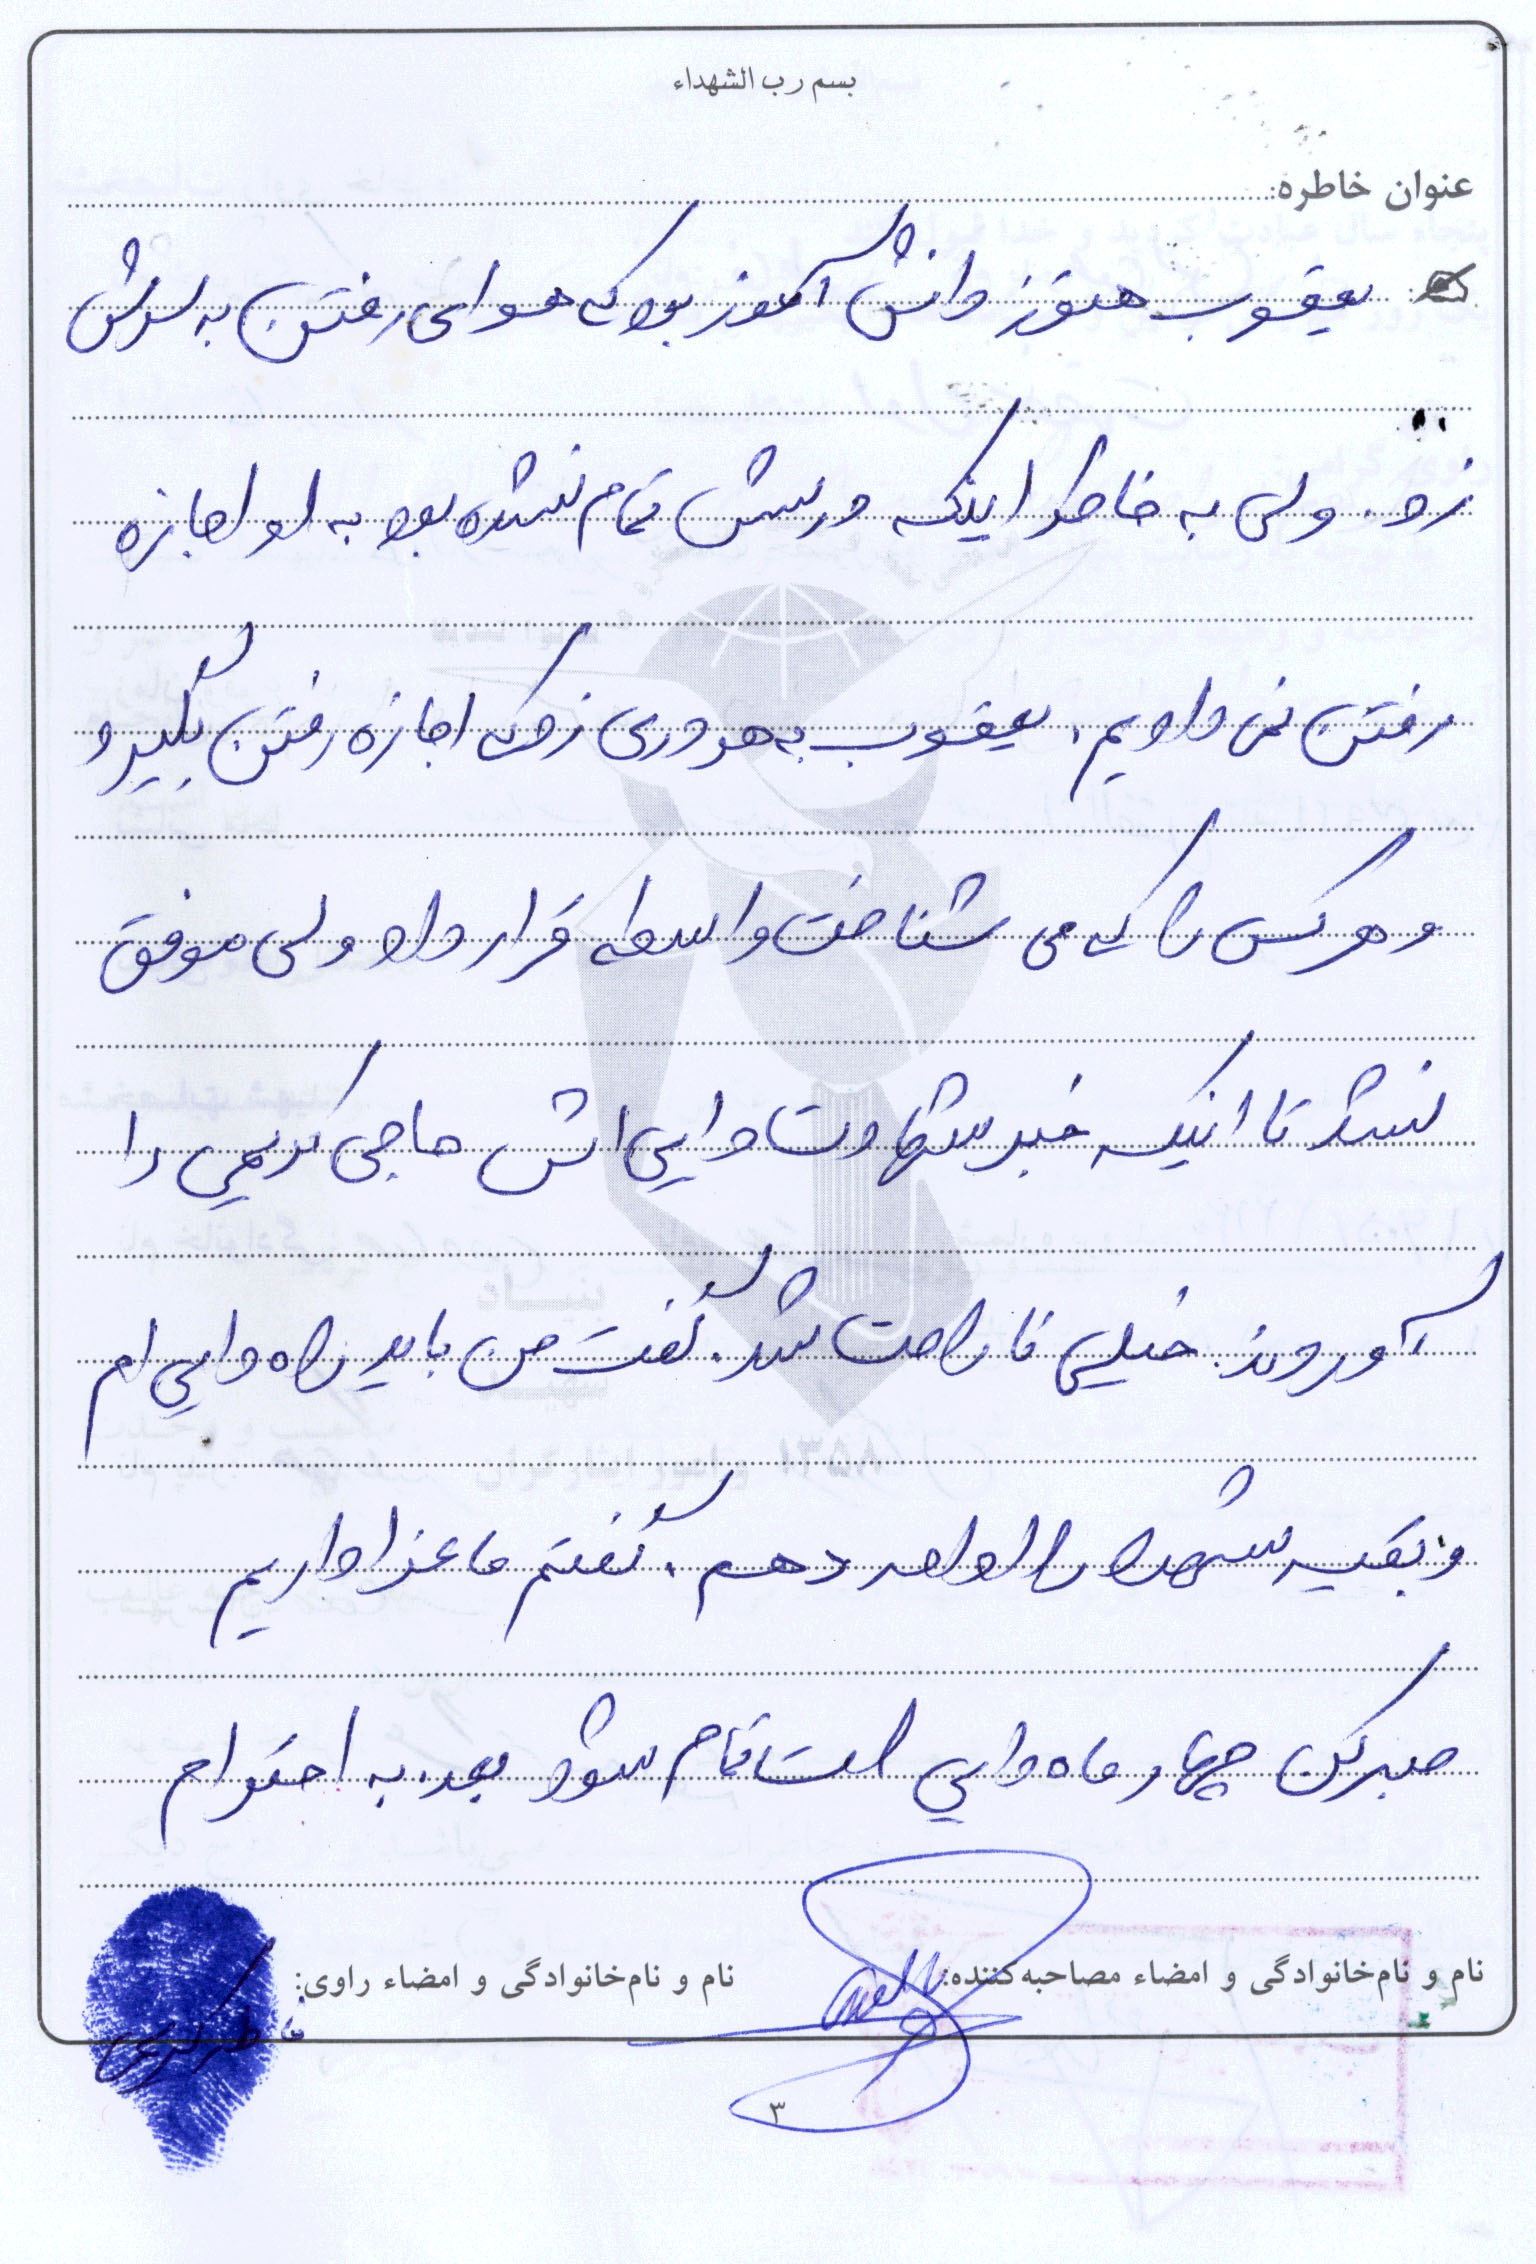 بسم رب الشهداء
عنوان خاطره:
یعقوب هنوز دانش آموز بود که هوای رفتن به سرش
زد. ولی به خاطر اینکه درسش تمام نشده بود به او اجازه
رفتن نمی دادیم. یعقوب به هر دری زد که اجازه رفتن بگیرد
و هر کس را که می شناخت واسطه قرار داد ولی موفق
نشد تا اینکه خبر شهادت دایی اش حاجی کریمی را
آوردند. خیلی ناراحت شد. گفت من باید راه دایی ام
و بقیه شهدا را ادامه دهم. گفتم ما عزا داریم
صبر کن چهار ماه دایی ات تمام شود بعد. به احترام
نام و نام‌خانوادگی و امضاء مصاحبه‌کننده:
نام و نام‌خانوادگی و امضاء راوی:
کریمی
۳